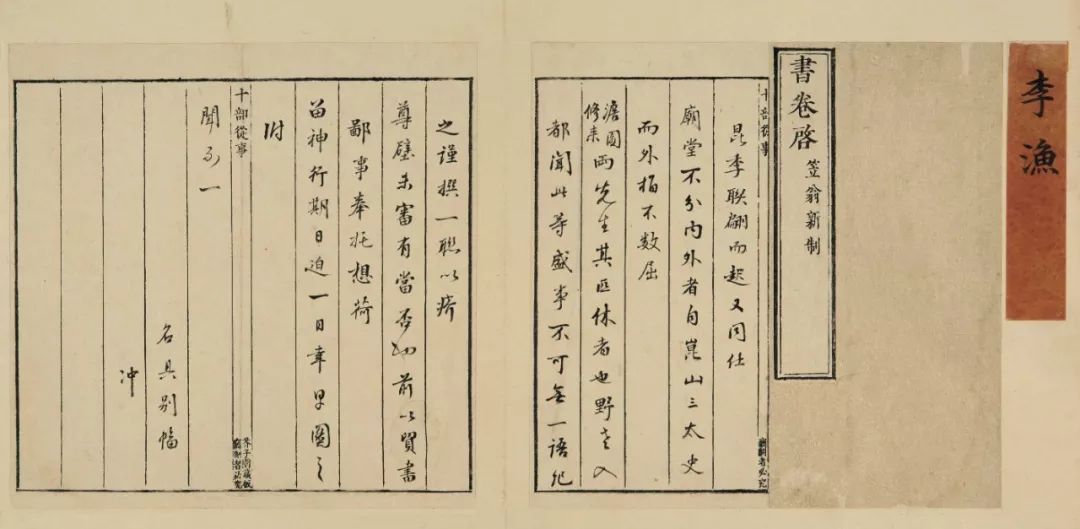 李漁
書卷啓
笠翁新制
十部從事
昆季聯翩而起又同仕
廟堂不分内外者自崑山三太史
而外指不數屈
澹園修来两先生其匹休者也野老入
都聞此等盛事不可無一語紀
翻刻者必究
之謹撰一聯以疥
尊壁未審有當否前以買書
鄙事奉托想荷
留神行期日迫一日幸早圖之
附
十部從事
芥子園藏板
翻刻者必究
聞不一
名具別幅
冲